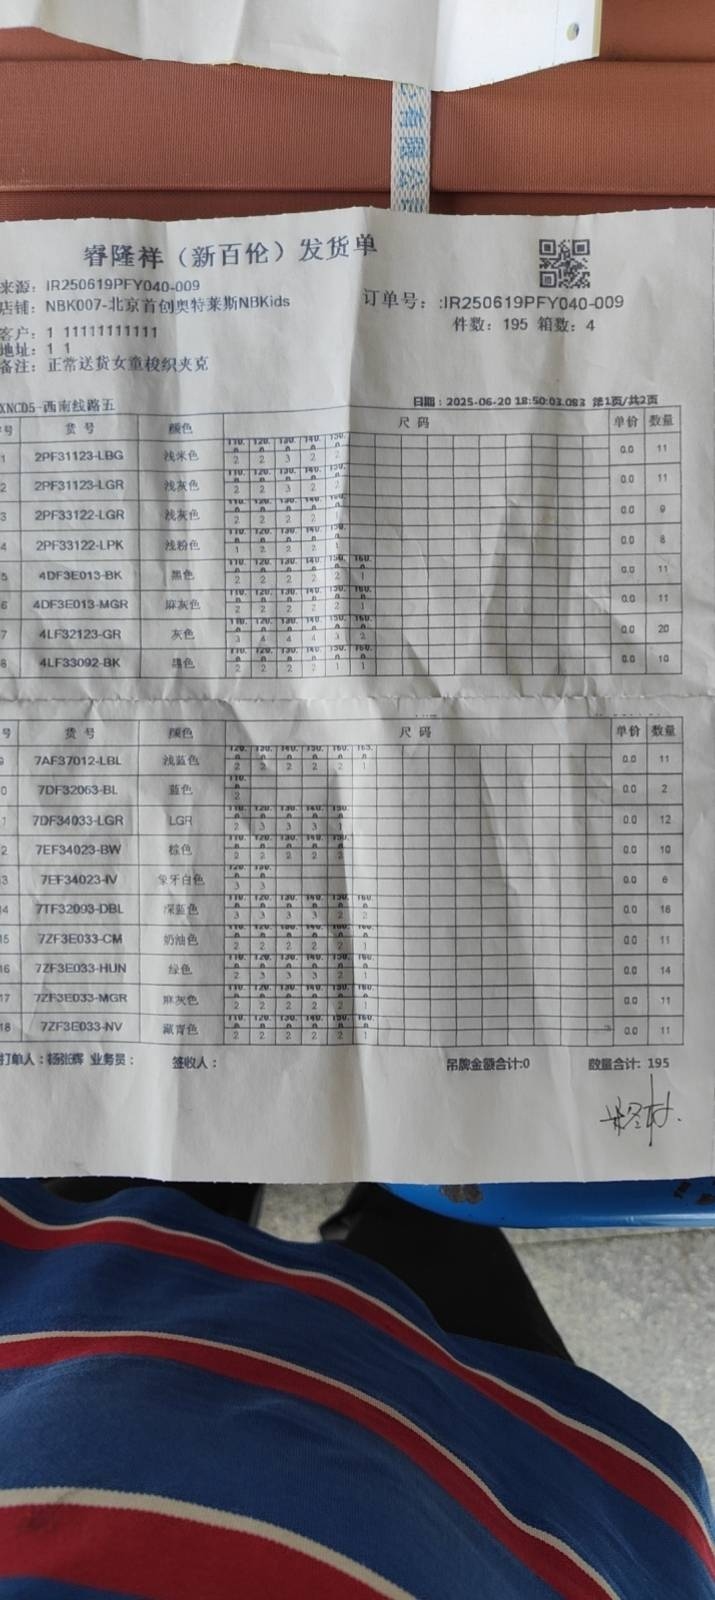 有限公
睿隆祥（新百伦）发货单
来源：IR250619PFY040-009
店铺：NBK007-北京首创奥特莱斯NBKids
订单号：:IR250619PFY040-009
件数：195 箱数：4
客户：1 11111111111
地址：1 1
备注：正常送货女童梭织夹克
XNCD5-西南线路五
日期：2025-06-20 18:50:03.083 第1页/共2页
号 货号 颜色 尺码 单价 数量
110. 120. 130. 140. 150.
1 2PF31123-LBG 浅米色 2 2 3 2 2 0.0 11
110. 120. 130. 140. 150.
2 2PF31123-LGR 浅灰色 2 2 3 2 2 0.0 11
110. 120. 130. 140. 150.
3 2PF33122-LGR 浅灰色 2 2 2 2 1 0.0 9
110. 120. 130. 140. 150.
4 2PF33122-LPK 浅粉色 1 2 2 2 1 0.0 8
110. 120. 130. 140. 150. 160.
5 4DF3E013-BK 黑色 2 2 2 2 2 1 0.0 11
110. 120. 130. 140. 150. 160.
6 4DF3E013-MGR 麻灰色 2 2 2 2 2 1 0.0 11
110. 120. 130. 140. 150. 160.
7 4LF32123-GR 灰色 3 4 4 4 3 2 0.0 20
110. 120. 130. 140. 150. 160.
8 4LF33092-BK 黑色 2 2 2 2 1 1 0.0 10
号 货号 颜色 尺码 单价 数量
120. 130. 140. 150. 160. 165.
7AF37012-LBL 浅蓝色 2 2 2 2 2 1 0.0 11
110.
0 7DF32063-BL 蓝色 2 0.0 2
110. 120. 130. 140. 150.
1 7DF34033-LGR LGR 2 3 3 3 1 0.0 12
110. 120. 130. 140. 150.
2 7EF34023-BW 棕色 2 2 2 2 2 0.0 10
120. 130.
3 7EF34023-IV 象牙白色 3 3 0.0 6
110. 120. 130. 140. 150. 160.
14 7TF32093-DBL 深蓝色 3 3 3 3 2 2 0.0 16
110. 120. 130. 140. 150. 160.
15 7ZF3E033-CM 奶油色 2 2 2 2 2 1 0.0 11
110. 120. 130. 140. 150. 160.
16 7ZF3E033-HUN 绿色 2 3 3 3 2 1 0.0 14
110. 120. 130. 140. 150. 160.
17 7ZF3E033-MGR 麻灰色 2 2 2 2 2 1 0.0 11
110. 120. 130. 140. 150. 160.
18 7ZF3E033-NV 藏青色 2 2 2 2 2 1 0.0 11
打单人：杨张辉 业务员： 签收人： 吊牌金额合计:0 数量合计: 195